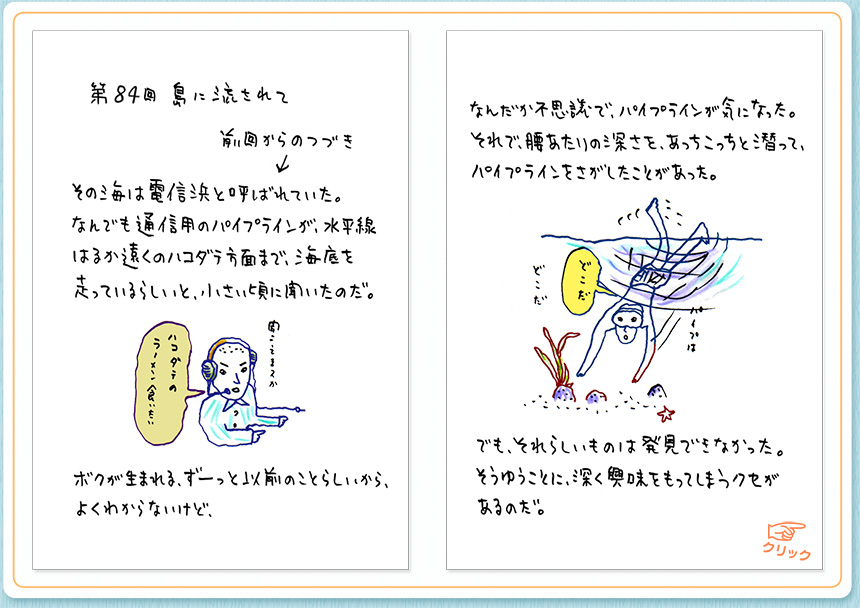 第84回 島に流されて
前回からのつづき
その海は電信浜と呼ばれていた。
なんでも通信用のパイプラインが、水平線
はるか遠くのハコダテ方面まで、海底を
走っているらしいと、小さい頃に聞いたのだ。
ハコダテの
ラーメン食いたい
聞こえますか
ボクが生まれる、ずーっと以前のことらしいから、
よくわからないけど、
なんだか不思議で、パイプラインが気になった。
それで、腰あたりの深さを、あっちこっちと潜って、
パイプラインをさがしたことがあった。
どこだ
どこだ
パイプは
でも、それらしいものは発見できなかった。
そうゆうことに、深く興味をもってしまうクセが
あるのだ。
クリック